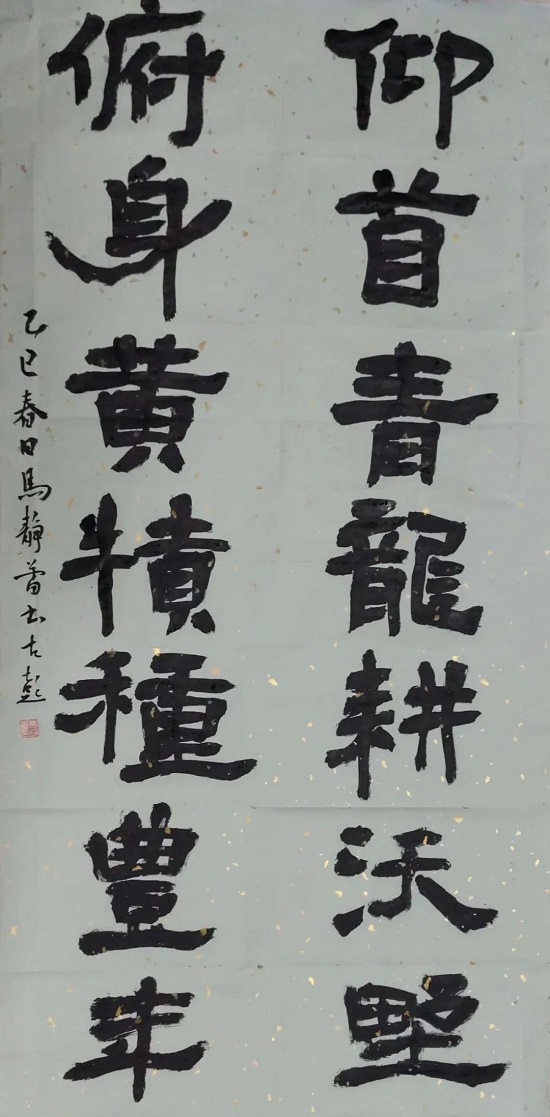 仰首青龍耕沃野
俯身黄犢種豊年
乙巳春日馬靜蕾书古彭